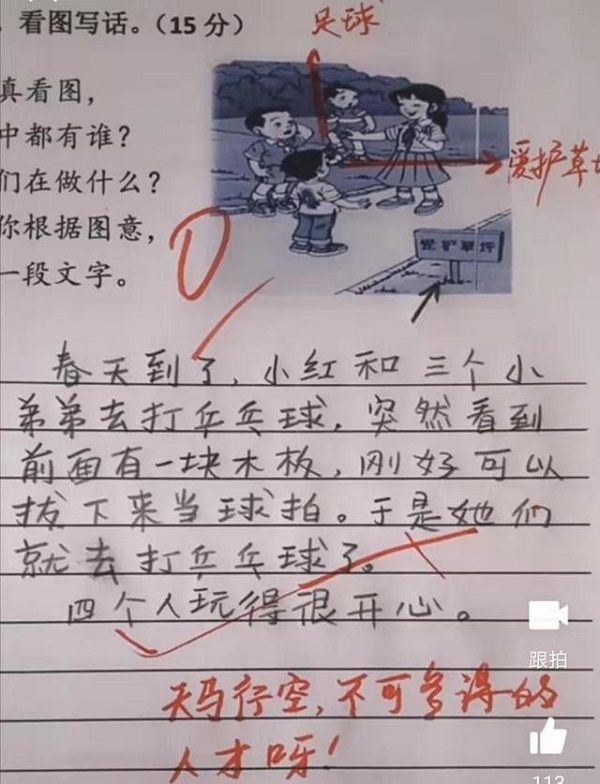 看图写话。（15 分）
足球
真看图，
中都有谁？
们在做什么？
你根据图意，
一段文字。
爱护草
爱护草坪
0
春天到了，小红和三个小
弟弟去打乒乓球，突然看到
前面有一块木板，刚好可以
拔下来当球拍。于是她们
就去打乒乓球了。
四个人玩得很开心。
天马行空，不可多得的
人才呀！
跟拍
113